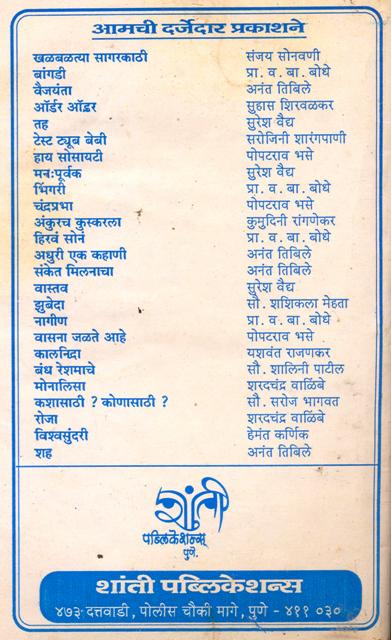 आमची दर्जेदार प्रकाशने
खळबळत्या सागरकाठी संजय सोनवणी
बांगडी प्रा. व. बा. बोधे
वैजयंता अनंत तिबिले
ऑर्डर ऑर्डर सुहास शिरवळकर
तह सुरेश वैद्य
टेस्ट ट्यूब बेबी सरोजिनी शारंगपाणी
हाय सोसायटी पोपटराव भसे
मनःपूर्वक सुरेश वैद्य
भिंगरी प्रा. व. बा. बोधे
चंद्रप्रभा पोपटराव भसे
अंकुरच कुस्करला कुमुदिनी रांगणेकर
हिरवं सोनं प्रा. व. बा. बोधे
अधुरी एक कहाणी अनंत तिबिले
संकेत मिलनाचा अनंत तिबिले
वास्तव सुरेश वैद्य
झुबेदा सौ. शशिकला मेहता
नागीण प्रा. व. बा. बोधे
वासना जळते आहे पोपटराव भसे
कालनिद्रा यशवंत राजणकर
बंध रेशमाचे सौ. शालिनी पाटील
मोनालिसा शरदचंद्र वाळिंबे
कशासाठी ? कोणासाठी ? सौ. सरोज भागवत
रोजा शरदचंद्र वाळिंबे
विश्वसुंदरी हेमंत कर्णिक
शह अनंत तिबिले
शांती
पब्लिकेशन्स्
पुणे.
शांती पब्लिकेशन्स
४७३ दत्तवाडी, पोलीस चौकी मागे, पुणे - ४११ ०३०